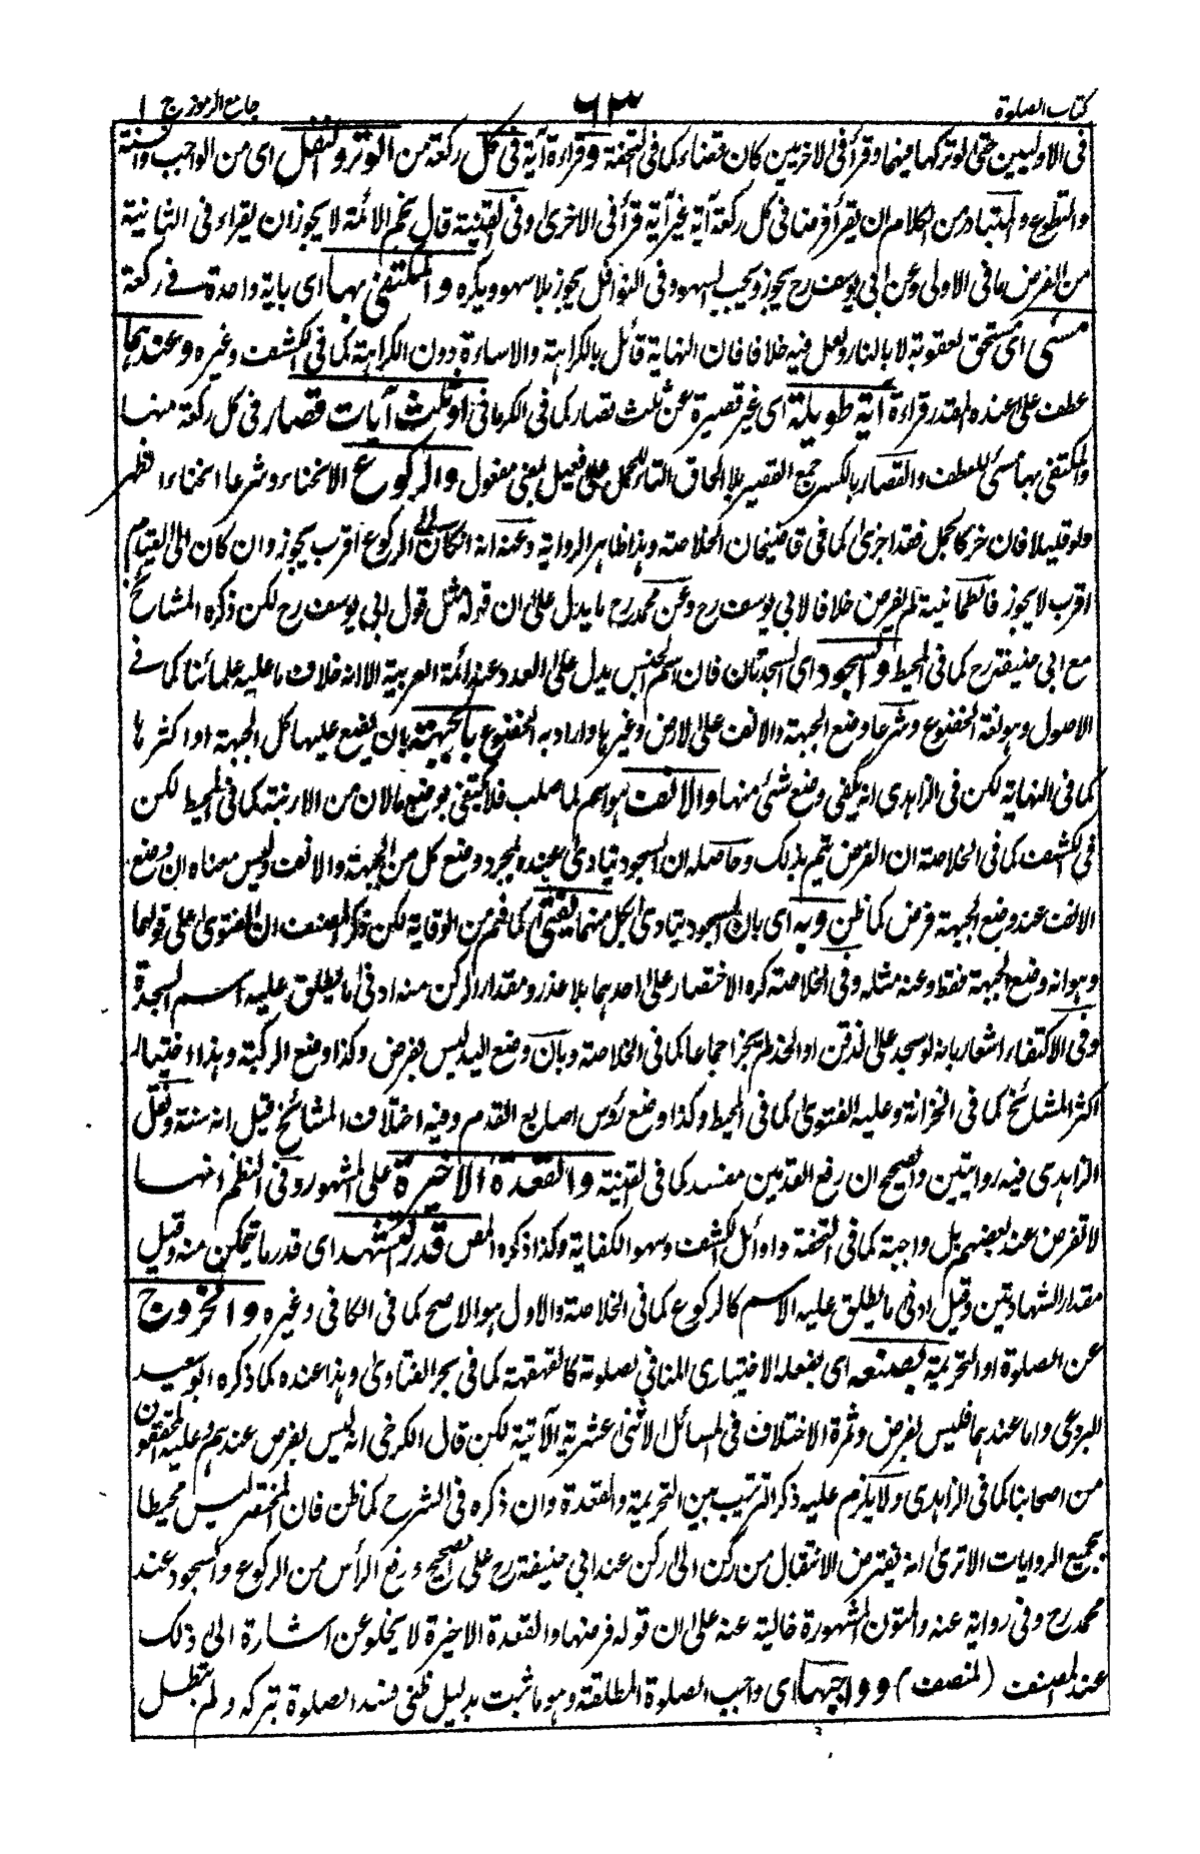 كتاب الصلوة
٦٣
جامع الرموز ج ١
فى الاوليين حتى لو تركها فيهما وقرأ فى الاخريين كان قضاء كما فى التحفة وقراءة آية فى كل ركعة من الوتر والنفل اى من الواجب والسنة
والتطوع والمتبادر من الكلام ان يقرأ فرضا فى كل ركعة آية غير آية قرأ فى الاخرى وفى القنية قال نجم الائمة لا يجوز ان يقراء فى الثانية
من الفرض ما فى الاولى وعن ابى يوسف رح يجوز ويجب السهو وفى النوافل يجوز بلا سهو ويكره والمكتفى بها اى باية واحدة فى ركعة
مسئى اى مستحق لعقوبة لا بالنار ولعل فيه خلافا فان النهاية قائل بالكراهة والاساءة دون الكراهة كما فى الكشف وغيره وعندهما
عطف على عنده المقدر قراءة آية طويلة اى غير قصيرة عن ثلث قصار كما فى الكرمانى او ثلث آيات قصار فى كل ركعة منها
والمكتفى بها مسئى للعطف والقصار بالكسر جمع القصير بلا الحاق التاء للحمل على فعيل بمعنى مفعول والركوع الانحناء وشرعا انحناء الظهر
ولو قليلا فان خر كالجمل فقد اجزى كما فى قاضيخان الخلاصة وهذا ظاهر الرواية وعنه انه ان كان الى الركوع اقرب يجوز وان كان الى القيام
اقرب لا يجوز فالطمانية لم يفرض خلافا لابى يوسف رح وعن محمد رح ما يدل على ان قوله مثل قول ابى يوسف رح لكن ذكره المشائخ
مع ابى حنيفة رح كما فى المحيط والسجود اى السجدتان فان اسم الجنس يدل على العدد عند ائمة العربية الا انه خلاف ما عليه علمائنا كما فى
الاصول وهو لغة الخضوع وشرعا وضع الجبهة والانف على الارض وغيرها واراد به الخضوع بالجبهة بان يضع عليها كل الجبهة او اكثرها
كما فى النهاية لكن فى الزاهدى انه يكفى وضع شئ منها والانف هو اسم لما صلب فلا يكتفى بوضع مالان من الارنبة كما فى المحيط لكن
فى الكشف كما فى الخلاصة ان الفرض يتم بذلك وحاصله ان السجود يتادى عنده بمجرد وضع كل من الجبهة والانف وليس معناه ان وضع
الانف عند وضع الجبهة فرض كما ظن وبه اى بان السجود يتادى بكل منهما يفتى كما فهم من الوقاية لكن ذكر المصنف ان الفتوى على قولهما
وهو انه وضع الجبهة فقط وعنه مثله وفى الخلاصة كره الاختصار على احدهما بلا عذر ومقدار الركن منه ادنى ما يطلق عليه اسم السجدة
وفى الاكتفاء اشعار بانه لو سجد على الذقن او الخد لم يجز اجماعا كما فى الخلاصة وبان وضع اليد ليس بفرض وكذا وضع الركبة وهذا اختيار
اكثر المشائخ كما فى الخزانة وعليه الفتوى كما فى المحيط وكذا وضع رؤس اصابع القدم وفيه اختلاف المشائخ قيل انه سنة ونقل
الزاهدى فيه روايتين والصحيح ان رفع القدمين مفسد كما فى القنية والقعدة الاخيرة على المشهور وفى النظم انها
لا تفرض عند بعضهم بل واجبة كما فى التحفة واوائل الكشف وسهو الكفاية وكذا ذكره المص قدر التشهد اى قدر ما يتمكن منه وقيل
مقدار الشهادتين وقيل ادنى ما يطلق عليه الاسم كالركوع كما فى الخلاصة والاول هو الاصح كما فى الكافى وغيره والخروج
عن الصلوة او التحريمة بصنعه اى بفعله الاختيارى المنافى لصلوته كالقهقهة كما فى بحر الفتاوى وهذا عنده كما ذكره ابو سعيد
البردعى واما عندهما فليس بفرض وثمرة الاختلاف فى المسائل الاثنى عشرية الآتية لكن قال الكرخى انه ليس بفرض عندهم وعليه المحققون
من اصحابنا كما فى الزاهدى ولا يلزم عليه ذكر الترتيب بين التحريمة والقعدة وان ذكره فى الشرح كما ظن فان المختصر ليس محيطا
بجميع الروايات الا ترى انه يفترض الانتقال من ركن الى ركن عند ابى حنيفة رح على الصحيح ورفع الرأس من الركوع والسجود عند
محمد رح وفى رواية عنه والمتون المشهورة خالية عنه على ان قوله فرضها والقعدة الاخيرة لا يخلو عن اشارة الى ذلك
عند المصنف (لمنصف) وواجبها اى واجب الصلوة المطلقة وهو ما ثبت بدليل ظنى فسد الصلوة بتركه ولم تبطل